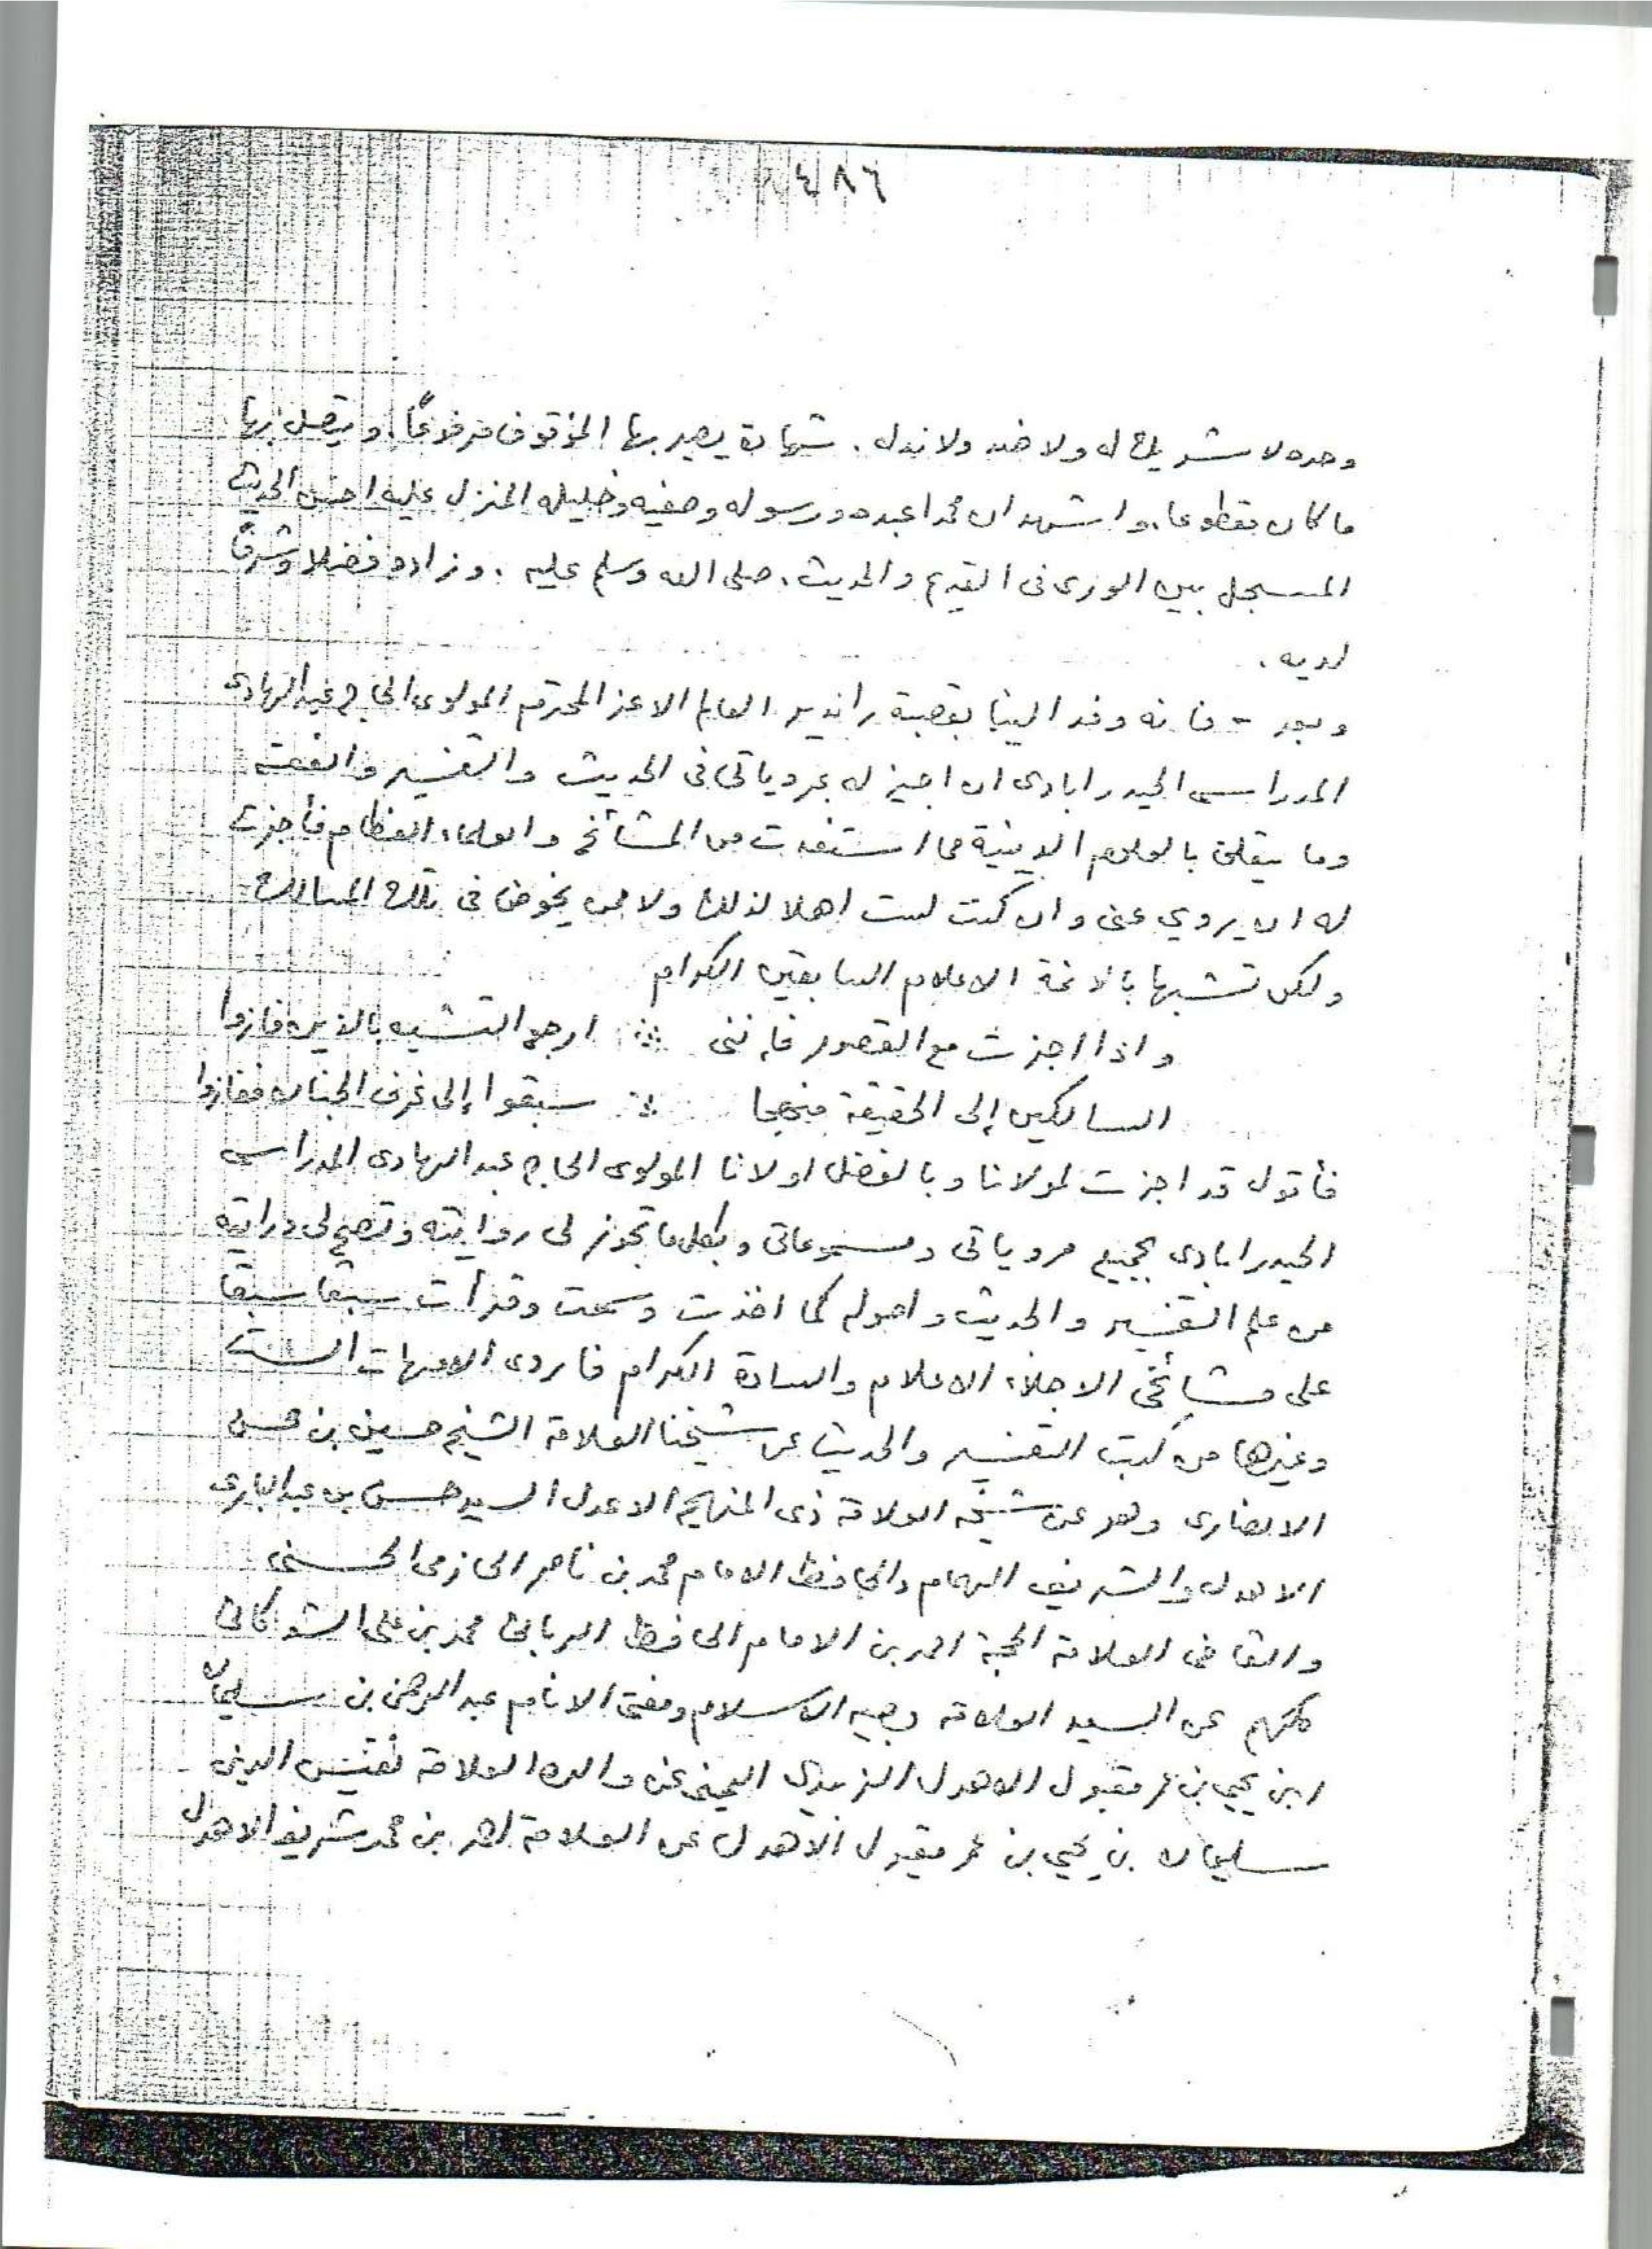 ٤٨٦
وحده لا شريك له ولا ضد ولا ند له . شهادة يصير بها الموقوف مرفوعًا . ويتصل بها
ما كان مقطوعا . واشهد ان محمدا عبده ورسوله وصفيه وخليله المنزل عليه احسن الحديث
المسجل بين الورى فى القديم والحديث . صلى الله وسلم عليه . وزاده فضلا وشرفًا
لديه .
وبعد - فانه وفد الينا بقصبة راندير العالم الاعز المحترم المولوى الحاج عبد الهادى
المدراسى الحيدرابادى ان اجيز له بمروياتى فى الحديث والتفسير والفقه
وما يتعلق بالعلوم الدينية مما استفدت من المشائخ والعلماء العظام فاجزت
له ان يروي عنى وان كنت لست اهلا لذلك ولا ممن يخوض فى تلك المسالك
ولكن تشبها بالائمة الاعلام السابقين الكرام
واذا اجزت مع القصور فاننى ∴ ارجو التشبه بالذين فازوا
السالكين إلى الحقيقة منهجا ∴ سبقوا إلى غرف الجنان ففازوا
فأقول قد اجزت لمولانا وبالفضل اولانا المولوى الحاج عبد الهادى المدراسى
الحيدرابادى بجميع مروياتى ومسموعاتى وبكل ما تجوز لى روايته وتصح لى درايته
من علم التفسير والحديث واصوله كما اخذت وسمعت وقرأت سبقا سبقا
على مشائخى الاجلاء الاعلام والسادة الكرام فاروى الامهات الست
وغيرها من كتب التفسير والحديث عن شيخنا العلامة الشيخ حسين بن محسن
الانصارى وهو عن شيخه العلامة ذى المنهج الاعدل السيد حسن بن عبد البارى
الاهدل والشريف الهمام والحافظ الامام محمد بن ناصر الحازمى الحسنى
والقاضى العلامة الحجة احمد بن الامام الحافظ الربانى محمد بن على الشوكانى
كلهم عن السيد العلامة وجيه الاسلام ومفتى الانام عبد الرحمن بن سليمان
ابن يحيى بن عمر مقبول الاهدل الزبيدى اليمنى عن والده العلامة نفيس الدين
سليمان بن يحيى بن عمر مقبول الاهدل عن العلامة احمد بن محمد شريف الاهدل